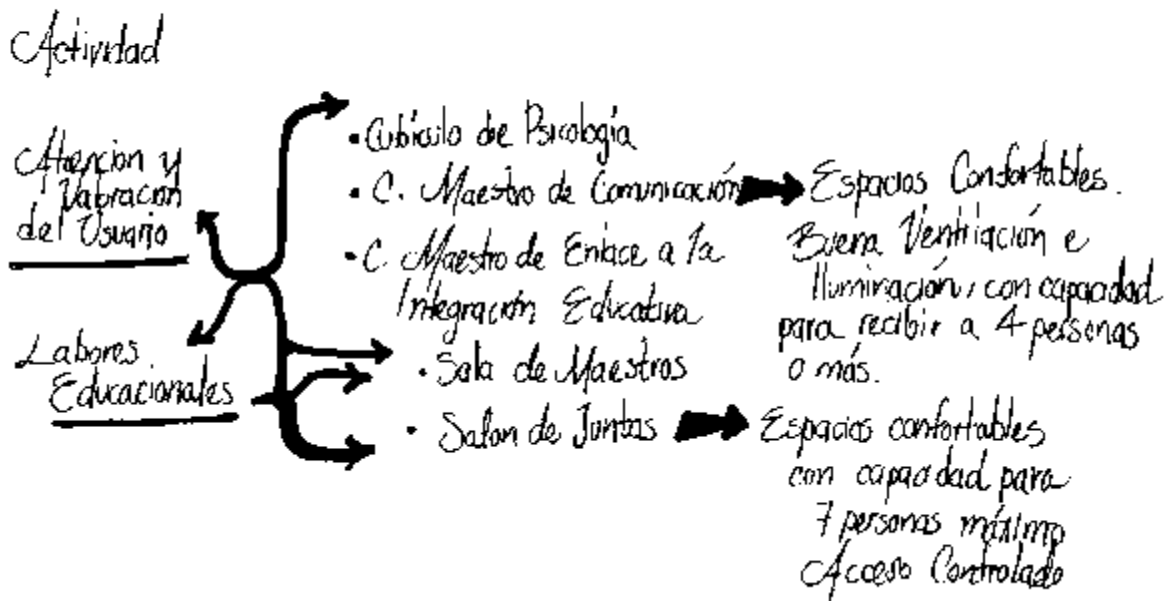 Actividad
Atencion y
Valoracion
del Usuario
Labores
Educacionales
• Cubículo de Psicología
• C. Maestro de Comunicación
• C. Maestro de Enlace a la
Integración Educativa
• Sala de Maestros
• Salon de Juntas
Espacios Confortables.
Buena Ventilación e
Iluminación, con capacidad
para recibir a 4 personas
o más.
Espacios confortables
con capacidad para
7 personas máximo
Acceso Controlado